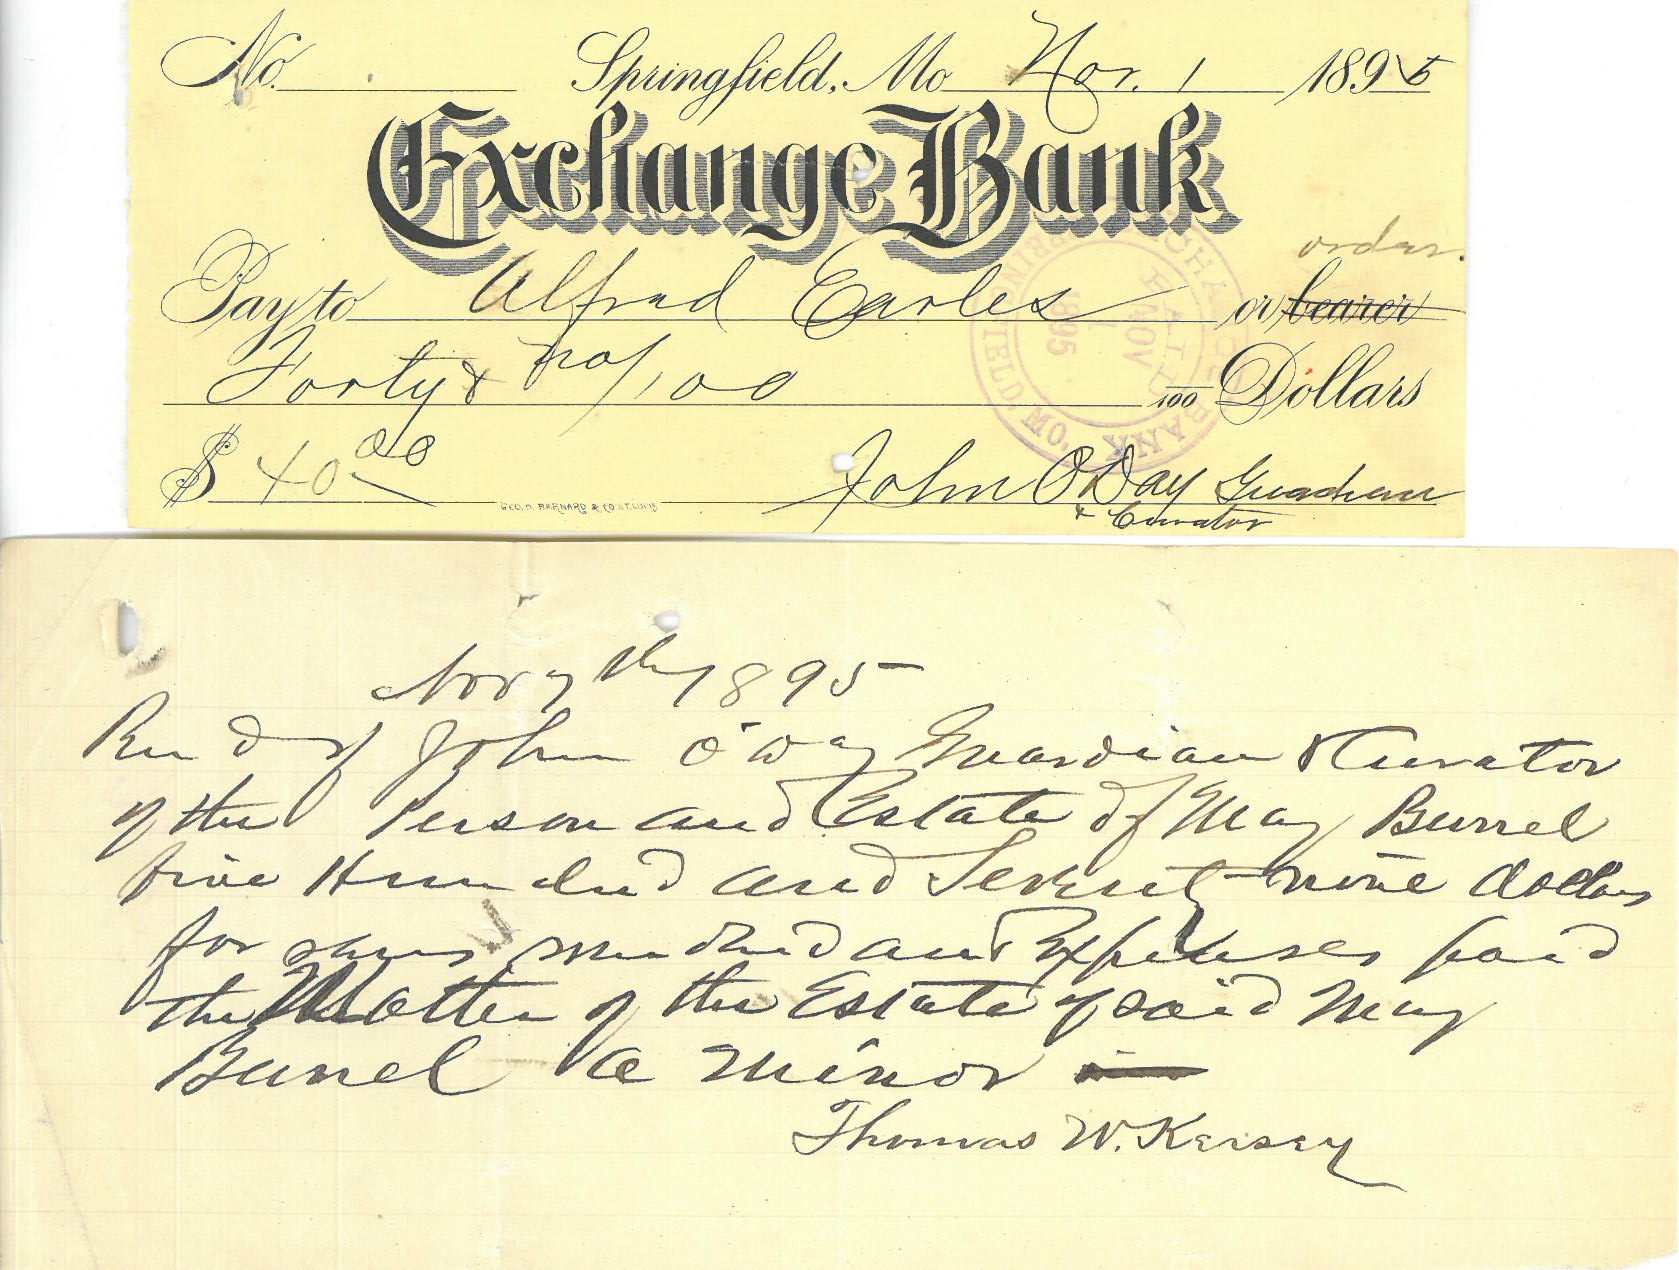 No. Springfield, Mo Nov. 1 1895
Exchange Bank
order.
Pay to Alfred Earles or bearer
Forty & no/100 /100 Dollars
$ 40 00
John O'Day Guardian
& Curator
GEO. D. BARNARD & CO. ST. LOUIS
EXCHANGE BANK SPRINGFIELD, MO.
PAID
NOV
1
1895
Nov 7th 1895
Recd of John O'Day Guardian & Curator
of the Person and Estate of May Burrel
five Hundred and Seventy nine dollars
for and Expenses paid
the Matter of the Estate of said May
Burrel a minor
Thomas W. Kersey